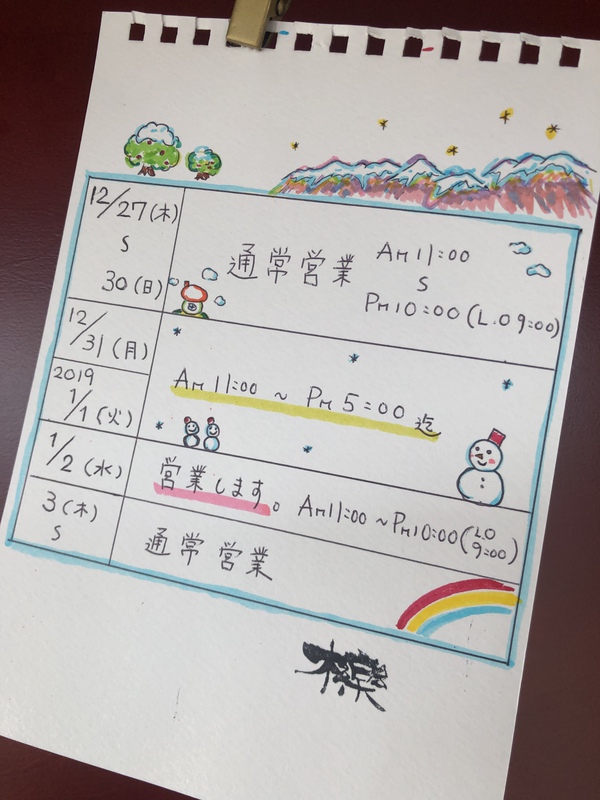 12/27(木)
S
30(日)
通常営業
AM11:00
S
PM10:00(L.O 9:00)
12/31(月)
2019
1/1(火)
AM11:00 ~ PM5:00 迄
1/2(水)
営業します。 AM11:00 ~PM10:00(L.O 9:00)
3(木)
S
通常営業